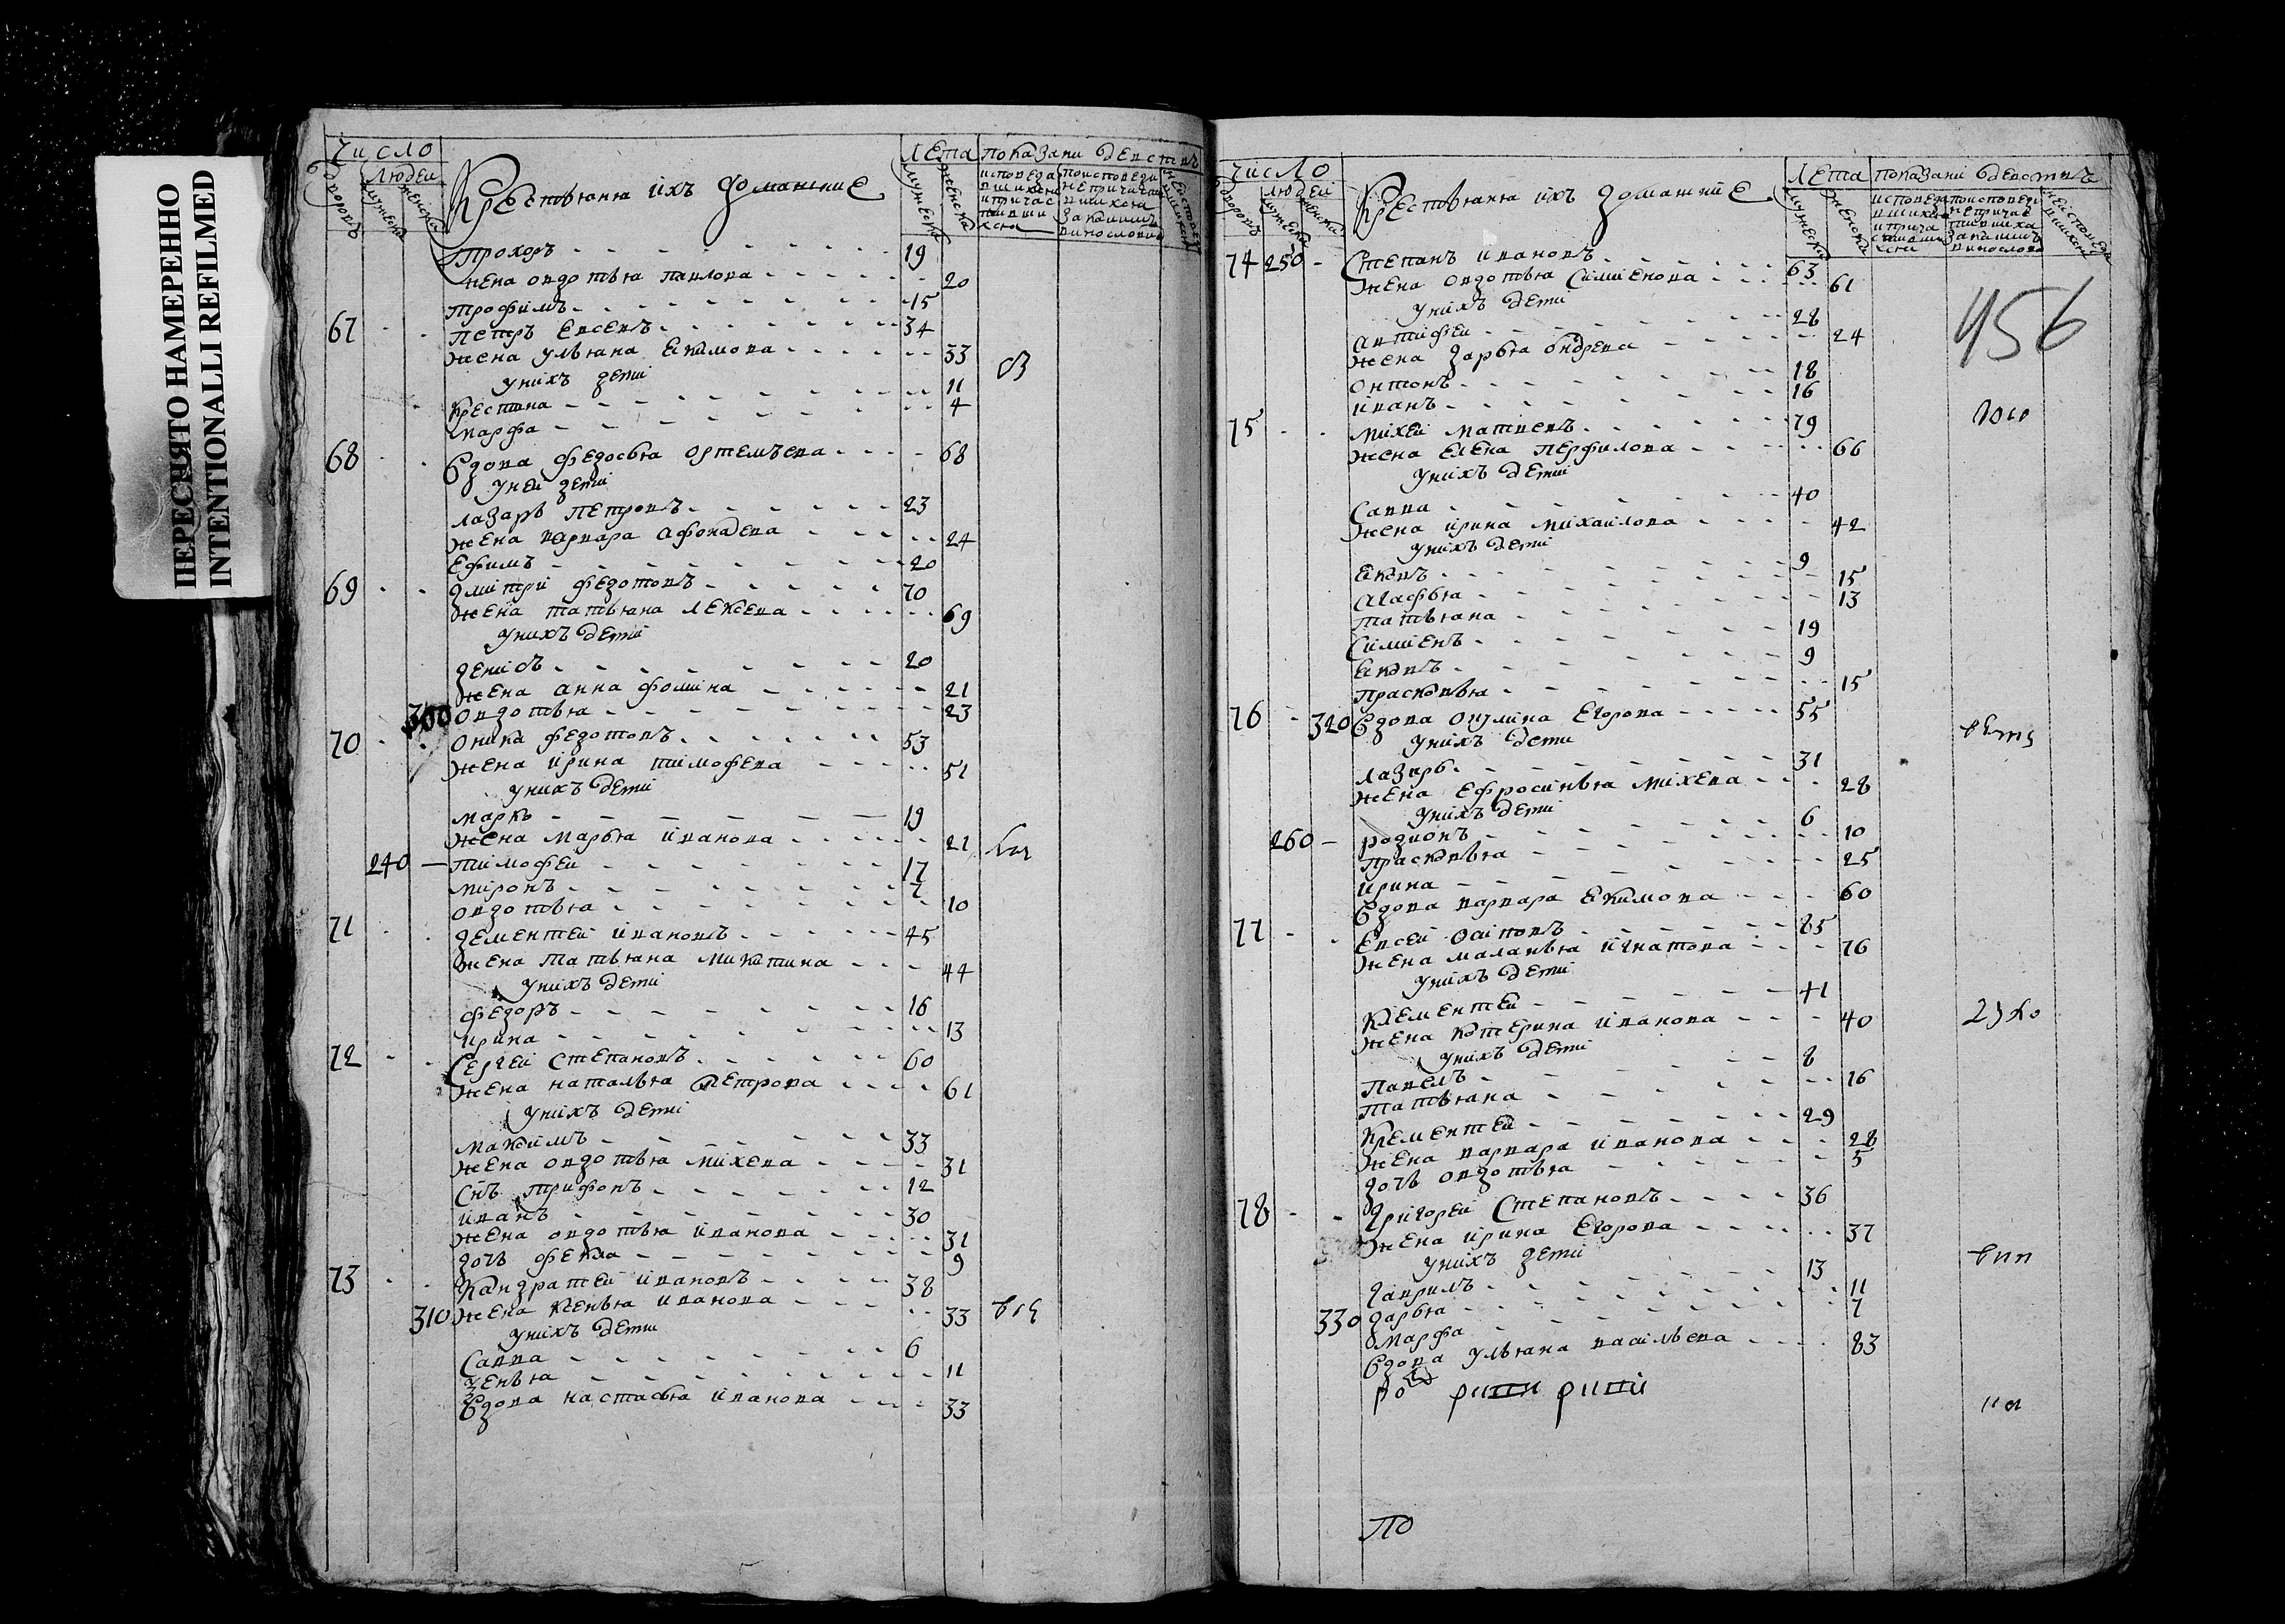 ПЕРЕСНЯТО НАМЕРЕННО
INTENTIONALLI REFILMED
Число
Людей
Крестьяня ихъ домашние
Лета
показани действъ
Прохоръ 19
жена овдотья павлова 20
трофимъ 15
67 петръ Евсевъ 34
жена ульяна Екимова 33
у нихъ дети
Крестина 11
Марфа 4
68 Вдова федосья ортемъева 68
у ней дети
лазарь петровъ 23
жена варвара афонасева 24
Ефимъ 20
69 дмитри федотовъ 70
жена татьяна лексева 69
у нихъ дети
денисъ 20
жена анна фомина 21
300 овдотья 23
70 оника федотовъ 53
жена ирина тимофева 51
у нихъ дети
маркъ 19
жена марья иванова 21
240 тимофей 17
миронъ 7
овдотья 10
71 дементей ивановъ 45
жена татьяна микитина 44
у нихъ дети
федоръ 16
ирина 13
72 Сергей Степановъ 60
жена наталья петрова 61
у нихъ дети
максимъ 33
жена овдотья михева 31
Снъ трифонъ 12
иванъ 30
жена овдотья иванова 31
дочь фекла 9
73 Кандратей ивановъ 38
310 жена ксенья иванова 33
у нихъ дети
Савва 6
зенья 11
Вдова настасья иванова 33
Число
людей
Крестьяня ихъ домашние
Лета
показани действъ
456
74 250 Степанъ ивановъ 63
жена овдотья Симиенова 61
у нихъ дети
антифеи 28
жена дарья ондрева 24
онтонъ 18
иванъ 16
75 михей матвевъ 79
жена Елена перфилова 66
у нихъ дети
Савва 40
жена ирина михайлова 42
у нихъ дети
Яковъ 9
агафья 15
татьяна 13
Симиенъ 19
Яковъ 9
прасковья 15
76 320 Вдова окулина Егорова 55
у нихъ дети
лазарь 31
жена Ефросинья михева 28
у нихъ дети
260 родионъ 6
прасковья 10
ирина 25
Вдова варвара Екимова 60
77 Евсей осиповъ 85
жена маланья игнатова 76
у нихъ дети
Клементей 41
жена катерина иванова 40
у нихъ дети
Павелъ 8
татьяна 16
Клементей 29
жена варвара иванова 28
дочь овдотья 5
78 Григорей Степановъ 36
жена ирина Егорова 37
у нихъ дети
гаврилъ 13
330 дарья 11
Марфа 7
Вдова ульяна васильева 83
по